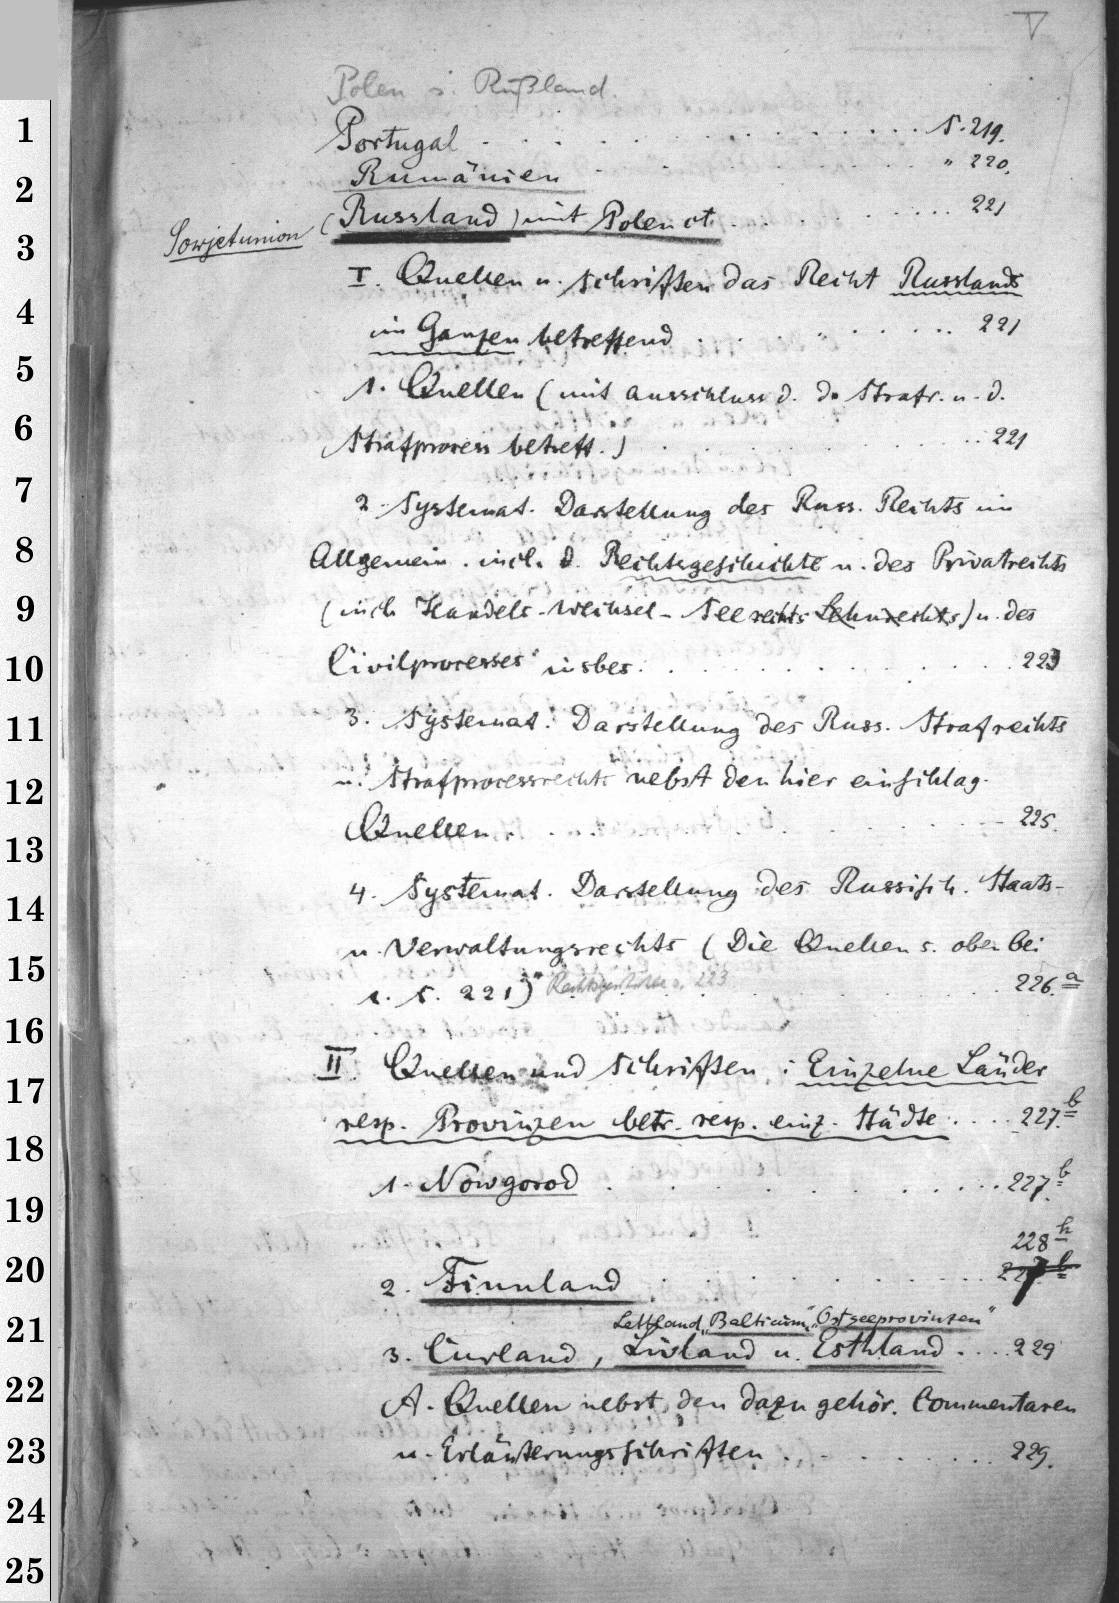 V
Polen s. Rußland.
Portugal . . . . . . . . . . S. 219.
Rumänien . . . . . . . " 220.
Sowjetunion (Russland) mit Polen et. . . . . . . . 221
I. Quellen u. Schriften das Recht Russlands
im Ganzen betreffend . . . . . . . 221
1. Quellen (mit Ausschluss d. d. Strafr. u. d.
Strafprocess betreff.) . . . . . . 221
2. Systemat. Darstellung des Russ. Rechts im
Allgemein. incl. d. Rechtsgeschichte u. des Privatrechts
(incl. Handels-Wechsel-Seerechts Lehnrechts) u. des
Civilprocesses insbes. . . . . . . . 223
3. Systemat. Darstellung des Russ. Strafrechts
u. Strafprocessrechts nebst den hier einschlag.
Quellen . . . . . . . . 225.
4. Systemat. Darstellung des Russisch. Staats-
u. Verwaltungsrechts (Die Quellen s. oben bei
1. S. 221) s. 223 . . . . . . 226.a
II. Quellen und Schriften : Einzelne Länder
resp. Provinzen betr. resp. einz. Städte . . . . 227.b
1. Nowgorod . . . . . . . . 227.b
228h
2. Finnland . . . . . . . . 227b
Lettland „Balticum“ „Ostseeprovinzen“
3. Curland, Livland u. Esthland . . . . 229
A. Quellen nebst den dazu gehör. Commentaren
u. Erläuterungsschriften . . . . . . 229.
1
2
3
4
5
6
7
8
9
10
11
12
13
14
15
16
17
18
19
20
21
22
23
24
25